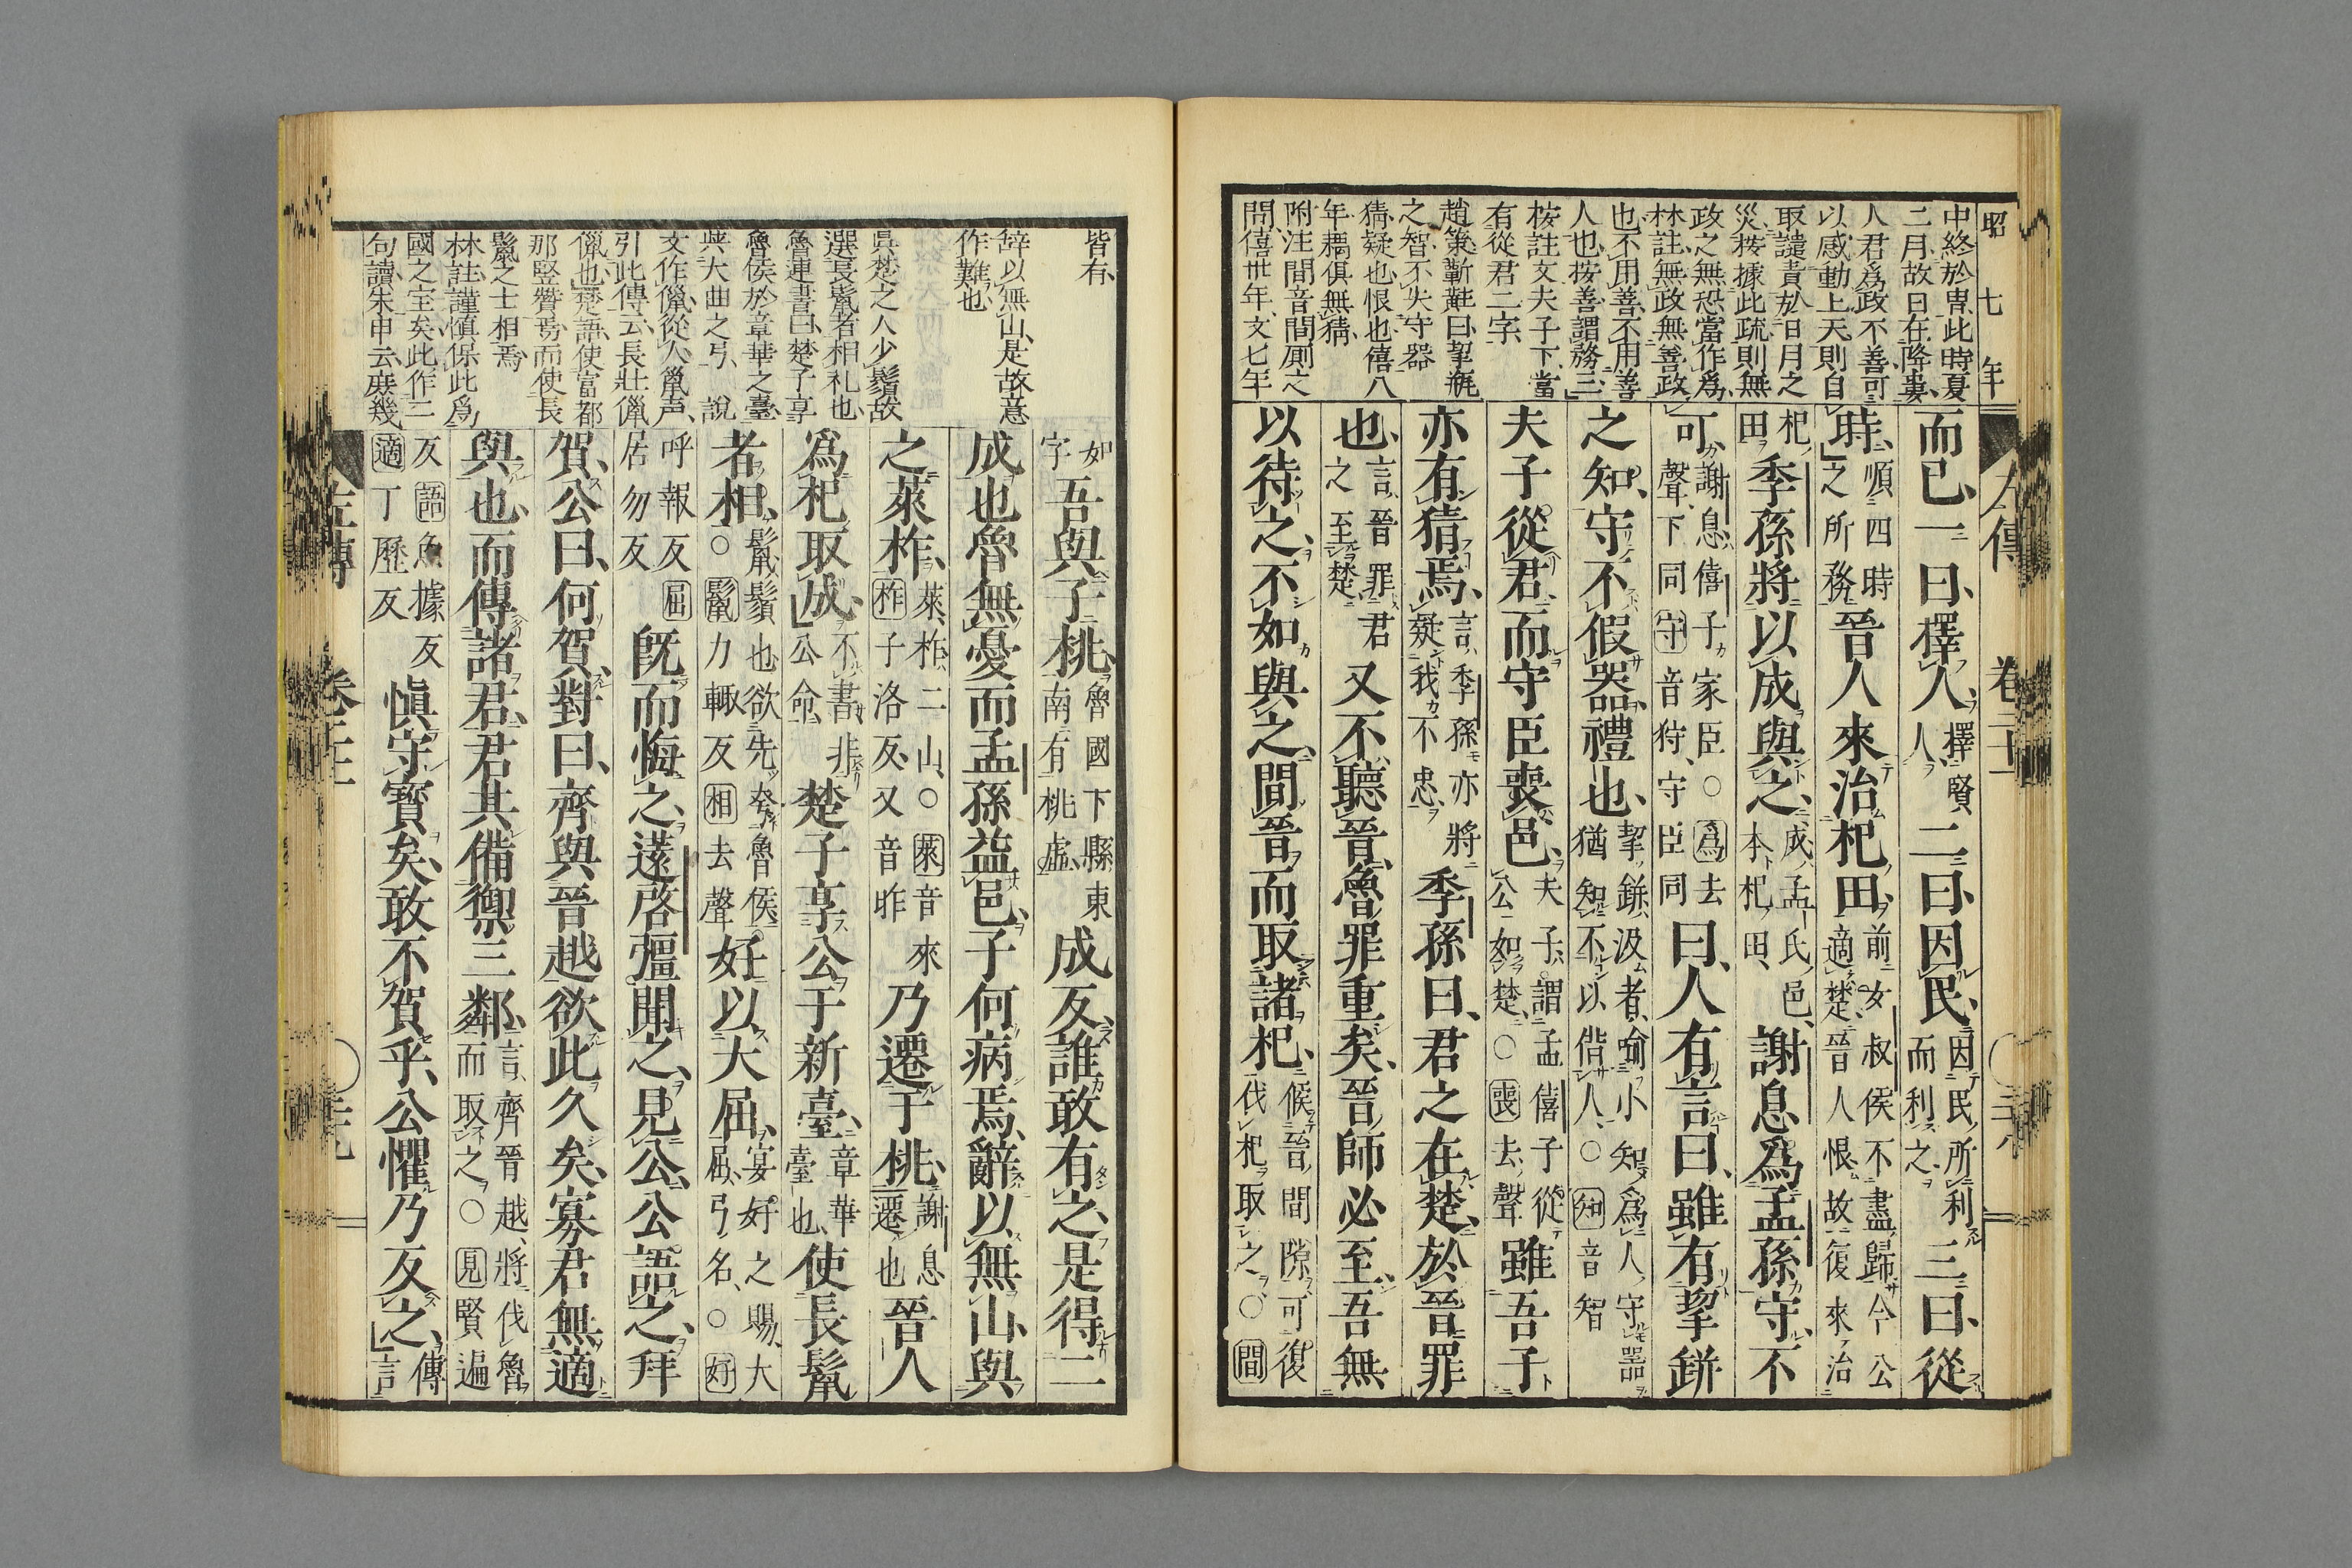 昭七年
中終於冑、此時夏
二月、故日在降婁、
人君爲政不善、可
以感動上天、則自
取譴責於日月之
災、按據此疏、則無
政之無恐當作爲、
林註、無政、無善政
也、不用善、不用善
人也、按善、謂務三、
按註文夫子下、當
有從君二字、
趙策、靳黈曰、挈瓶
之智、不失守器
猜疑也、恨也、僖八
年耦俱無猜、
附注、間音間厠之
間、僖卅年、文七年
而已、一曰、擇人、擇賢人、二曰、因民、因民所利而利之、三曰、從
時、順四時之所務晉人來治杞田、前女叔侯不盡歸、今公適楚、晉人恨故復來治
杞田季孫將以成與之、成、孟氏邑、本杞田、謝息爲孟孫守、不
可、謝息僖子家臣○爲去聲、下同守音狩、守臣同曰、人有言曰、雖有挈缾
之知、守不假器、禮也、挈缾、汲者、喻小知、爲人守器、猶知不以借人、○知音智
夫子從君、而守臣喪邑、夫子、謂孟僖子從公如楚、○喪去聲雖吾子
亦有猜焉、言季孫亦將疑我不忠、季孫曰、君之在楚、於晉罪
也、言晉罪君之至楚、又不聽晉、魯罪重矣、晉師必至、吾無
以待之、不如與之、間晉而取諸杞、候晉間隙、可復伐杞取之、○間
左傳 卷二十一
皆存、
辭以無山、是故意
作難也
吳楚之人少鬚、故
選長鬣者相礼也
魯連書曰、楚子享
魯侯於章華之臺、
與大曲之弓、說
文作儠、從人巤声、
引此傳云、長壯儠
儠也、楚語、使富都
那竪贊焉、而使長
鬣之士相焉、
林註、謹慎保此爲
國之宝矣、此作二
句讀、朱申云、庶幾
如字吾與子桃、魯國卞縣東南有桃虛、成反、誰敢有之、是得二
成也、魯無憂、而孟孫益邑、子何病焉、辭以無山、與
之萊柞、萊柞二山、○萊音來柞子洛反、又音昨乃遷于桃、謝息遷也晉人
爲杞取成、不書、非公命、楚子享公于新臺、章華臺也、使長鬣
者相、鬣、鬚也、欲先夸魯侯、○鬣力輙反相去聲好以大屈、宴好之賜、大屈、弓名、○好
呼報反屈居勿反既而悔之、薳啓彊聞之、見公、公語之、拜
賀、公曰、何賀、對曰、齊與晉越欲此久矣、寡君無適
與也、而傳諸君、君其備禦三鄰、言、齊晉越、將伐魯而取之、○見賢遍
反語魚據反適丁歷反愼守寶矣、敢不賀乎、公懼、乃反之、傳言
左傳